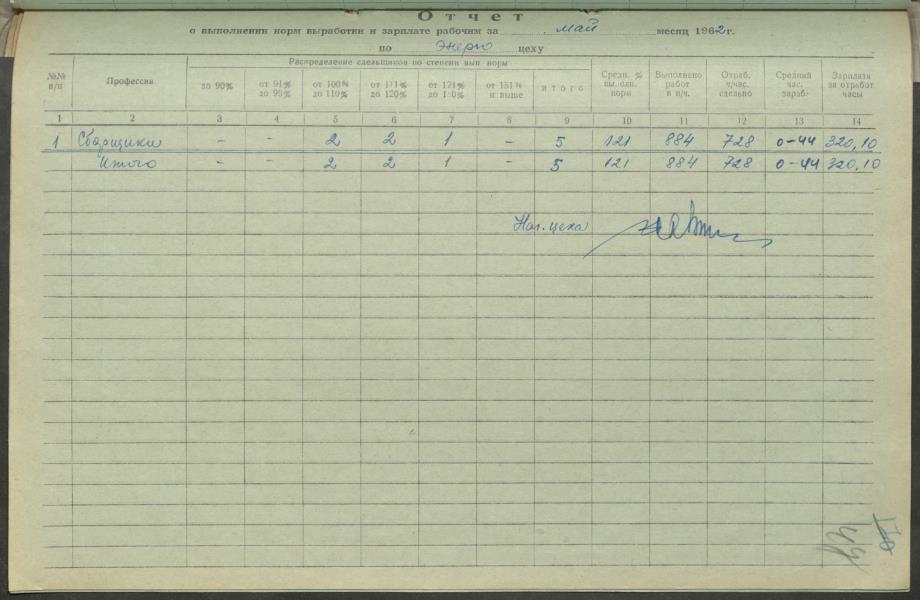 Отчет
о выполнении норм выработки и зарплате рабочим за май месяц 1962г.
по энерго цеху
№№ п/п Профессия Распределение сдельщиков по степени вып. норм Средн. % выполн. норм Выполнено работ в н/ч. Отраб. ч/час. сдельно Средний час. зараб. Зарплата за отработ. часы
до 90% от 91% до 99% от 100% до 110% от 111% до 120% от 121% до 130% от 131% и выше итого
1 2 3 4 5 6 7 8 9 10 11 12 13 14
1 Сборщики - - 2 2 1 - 5 121 884 728 0-44 320,10
Итого - - 2 2 1 - 5 121 884 728 0-44 320,10
Нач. цеха